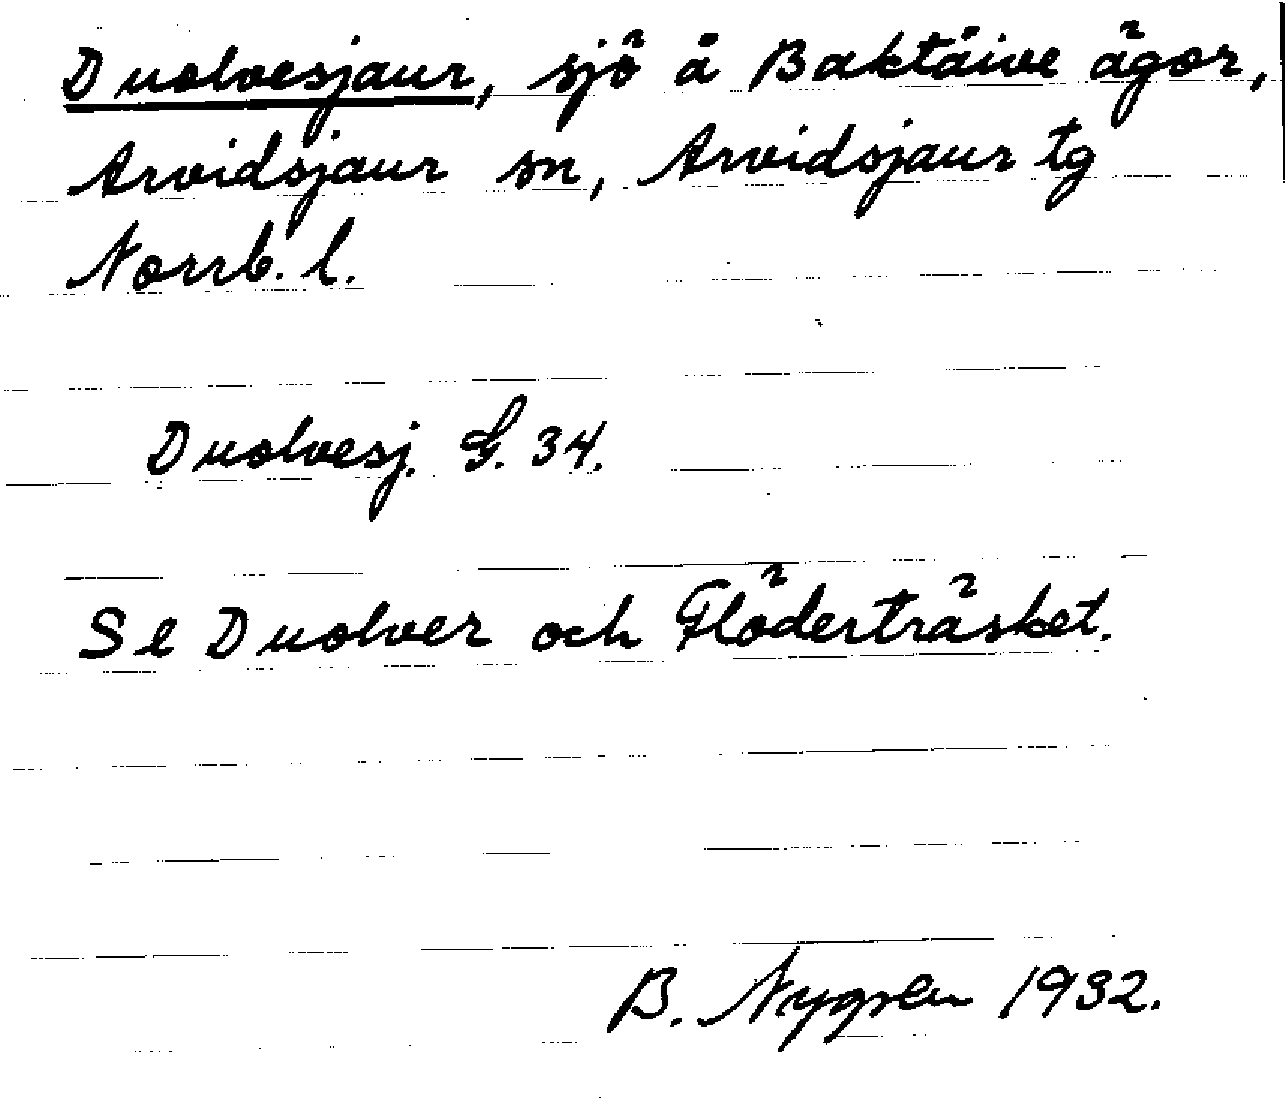 Duolvesjaur, sjö å Baktåive ägor,
Arvidsjaur sn, Arvidsjaur tg
Norrb. l.
Duolvesj. G. 34.
Se Duolver och Flöderträsket.
B. Nygren 1932.